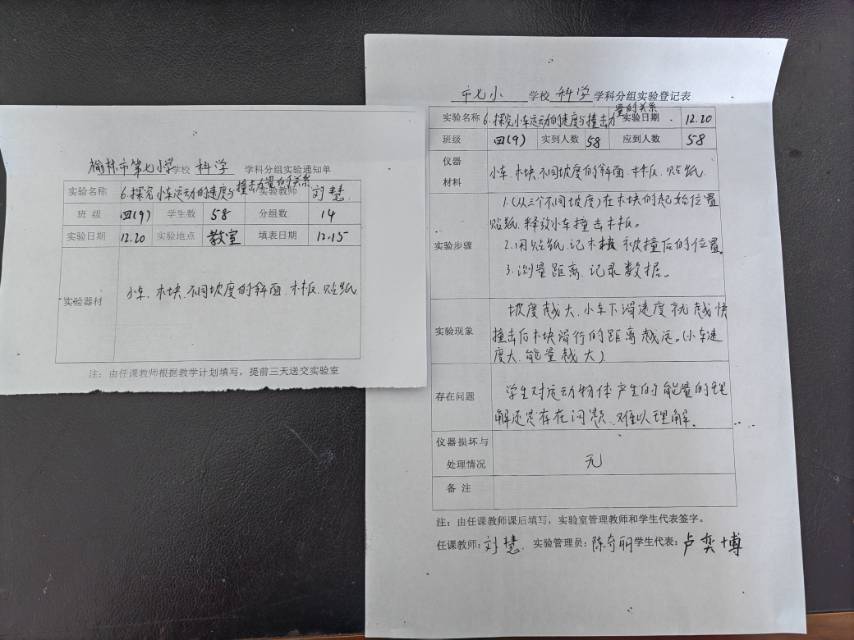 榆林市第七小学学校 科学 学科分组实验通知单
实验名称 6.探究小车运动的速度与撞击力量的关系 实验教师 刘慧
班 级 四(9) 学生数 58 分组数 14
实验日期 12.20 实验地点 教室 填表日期 12.15
实验器材 小车、木块、不同坡度的斜面、木板、贴纸
注：由任课教师根据教学计划填写，提前三天送交实验室
市七小 学校 科学 学科分组实验登记表
实验名称 6.探究小车运动的速度与撞击力量的关系 实验日期 12.20
班级 四(9) 实到人数 58 应到人数 58
仪器
材料
小车、木块、不同坡度的斜面、木板、贴纸
实验步骤
1.(从三个不同坡度)在木块的起始位置
贴纸,释放小车撞击木板。
2.用贴纸记木块被撞后的位置。
3.测量距离、记录数据。
实验现象
坡度越大,小车下滑速度就越快
撞击后木块滑行的距离越远。(小车速
度大,能量越大)
存在问题
学生对运动物体产生的能量的理
解还是存在问题、难以理解。
仪器损坏与
处理情况
无
备 注
注：由任课教师课后填写，实验室管理教师和学生代表签字。
任课教师：刘慧. 实验管理员：陈奇丽 学生代表：卢奕博